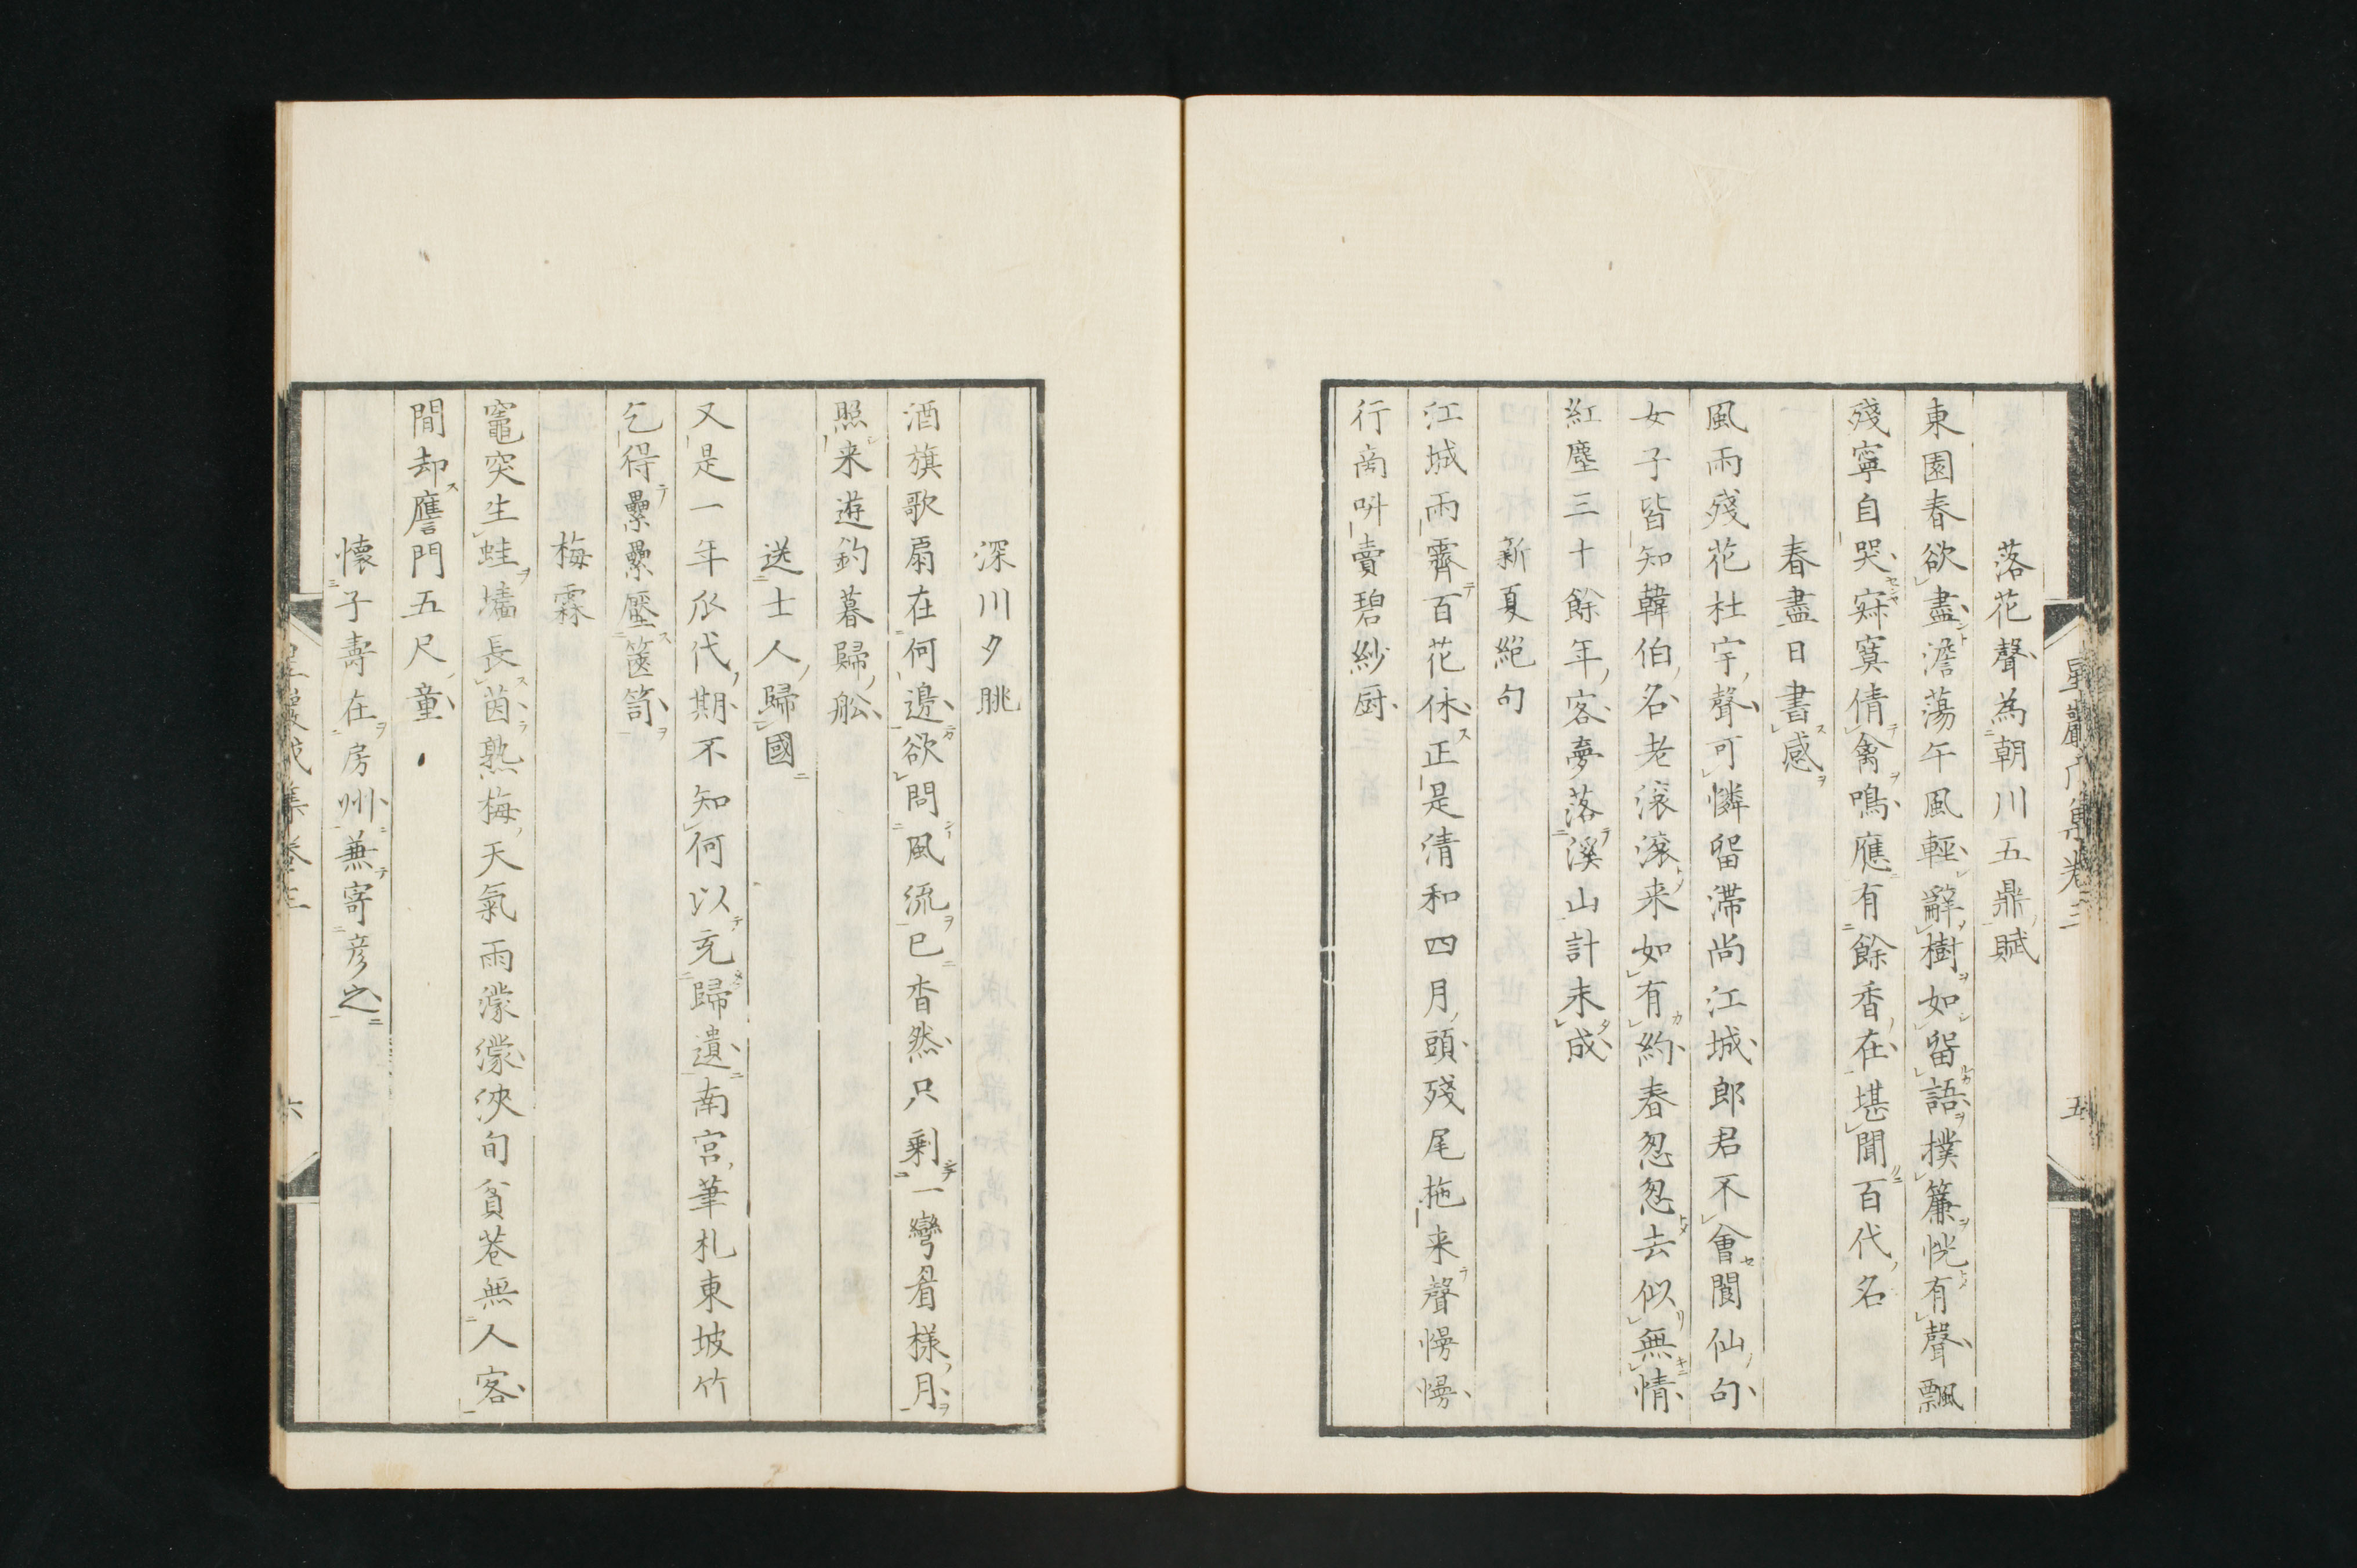 落花聲為朝川五鼎賦
東園春欲盡澹蕩午風輕辭樹如留語撲簾恍有聲飄
殘寧自哭寂寞倩禽鳴應有餘香在堪聞百代名
春盡日書感
風雨殘花杜宇聲可憐留滯尚江城郎君不會閬仙句
女子皆知韓伯名老滾滾来如有約春忽忽去似無情
紅塵三十餘年客夢落溪山計未成
新夏絕句
江城雨霽百花休正是清和四月頭殘尾拖来聲慢慢
行商呌賣碧紗厨
深川夕眺
酒旗歌扇在何邊欲問風流已杳然只剩一彎眉様月
照来遊釣暮歸舩
送士人歸國
又是一年瓜代期不知何以充歸遺南宮筆札東坡竹
乞得纍纍壓篋笥
梅霖
竈突生蛙墻長茵熟梅天氣雨濛濛浹旬貧巷無人客
間却譍門五尺童
懷子壽在房州兼寄彦之
五
六